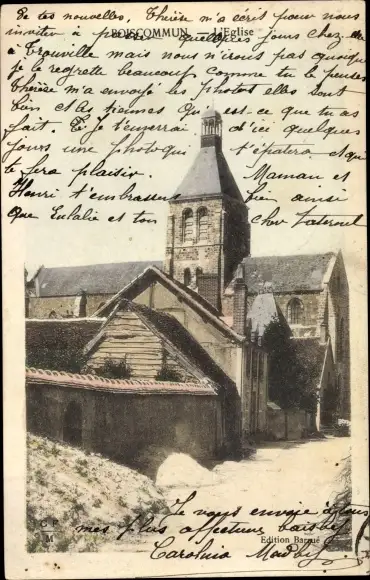 de tes nouvelles, Thérèse m'a écris pour nous
inviter à passer quelques jours chez
BOISCOMMUN. — L'Eglise
à Trouville mais nous n'irons pas quoique
je le regrette beaucoup, comme tu le penses
Thérèse m'a envoyé les photos elles sont
bien et les tiennes qu'est-ce que tu as
fait. Je t'enverrai d'ici quelques
jours une photo qui t'épatera et qui
te fera plaisir. Maman et
Henri t'embrassent bien ainsi
que Eulalie et ton cher
Je vous envoie à tous
mes plus affectueux baisers
C P
M
Edition Barqué